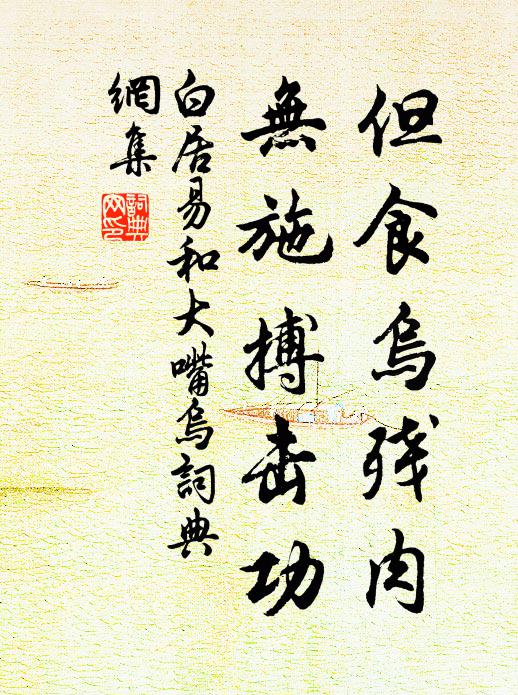 但食烏残肉
無施搏击功
白居易和大嘴烏詞典
網集
詞典
网印